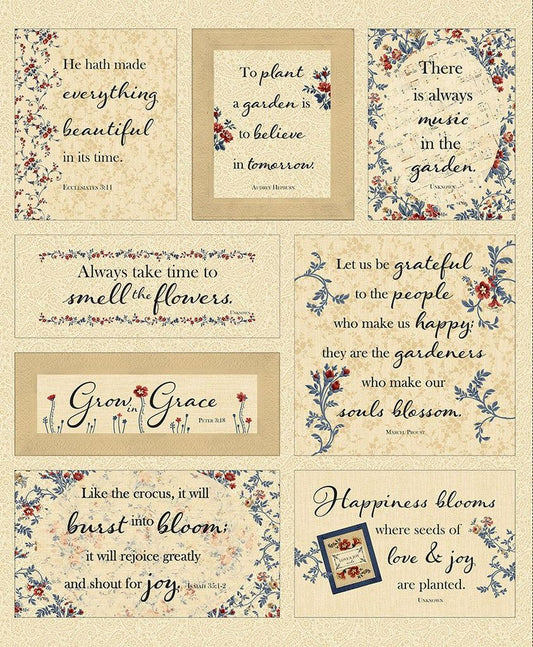 He hath made
everything
beautiful
in its time.
Ecclesiates 3:11
To plant
a garden is
to believe
in tomorrow.
Audrey Hepburn
There
is always
music
in the
garden.
Unknown
Always take time to
smell the flowers.
Unknown
Let us be grateful
to the people
who make us happy;
they are the gardeners
who make our
souls blossom.
Marcel Proust
Grow in Grace
Peter 3:18
Like the crocus, it will
burst into bloom;
it will rejoice greatly
and shout for joy.
Isaiah 35:1-2
Happiness blooms
where seeds of
love & joy
are planted.
Unknown